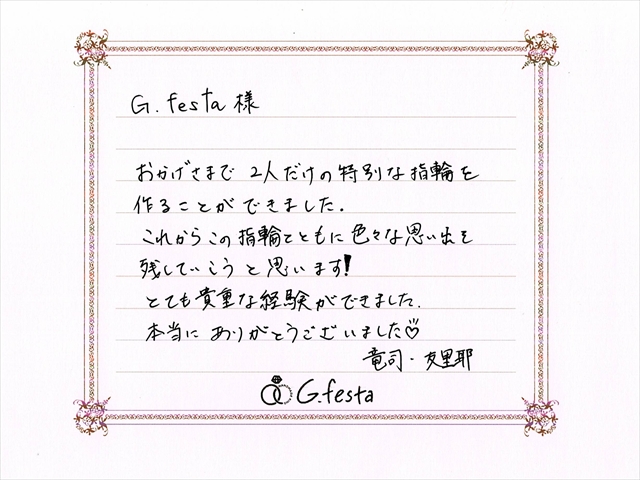 G.festa様
おかげさまで 2人だけの特別な指輪を
作ることができました.
これからこの指輪とともに色々な思い出を
残していこうと思います!
とても貴重な経験ができました.
本当にありがとうございました♡
竜司・友里耶
G.festa